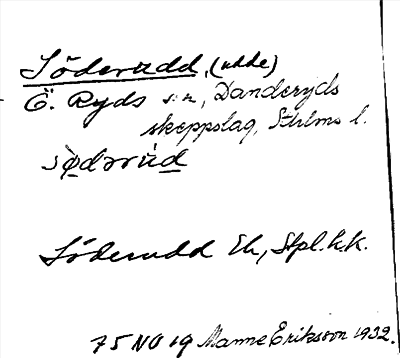 Söderudd, (udde)
Ö. Ryds sn, Danderyds
skeppslag, Sthlms l.
sø̀dərùd
Söderudd Ek, Stpl.h.k.
75 NO 19 Manne Eriksson 1932.